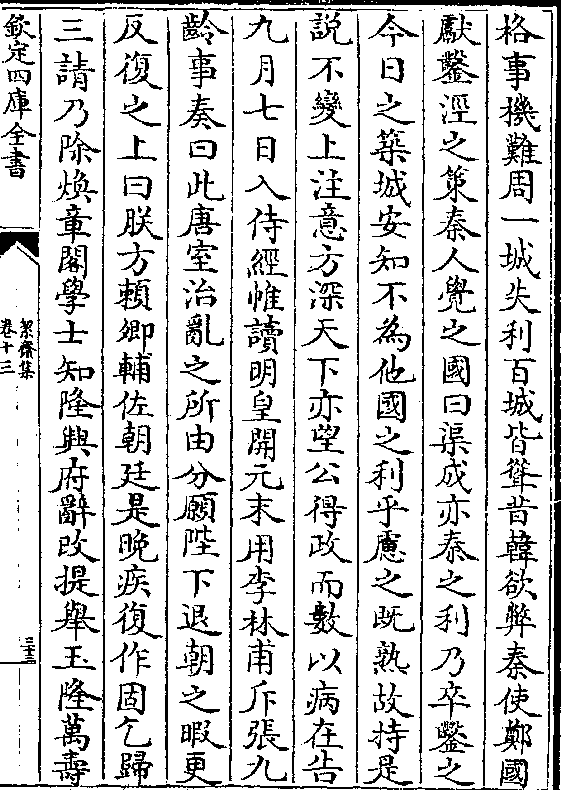 格事機難周一城失利百城皆聳昔韓欲弊秦使鄭國
獻鑿涇之策秦人覺之國曰渠成亦秦之利乃卒鑿之
今日之築城安知不為他國之利乎慮之既熟故持是
説不變上注意方深天下亦望公得政而數以病在告
九月七日入侍經帷讀明皇開元末用李林甫斥張九
齡事奏曰此唐室治亂之所由分願陛下退朝之暇更
反復之上曰朕方頼卿輔佐朝廷是晚疾復作固乞歸
三請乃除煥章閣學士知隆興府辭改提舉玉隆萬壽
欽定四庫全書
絜齋集
卷十三
三十三